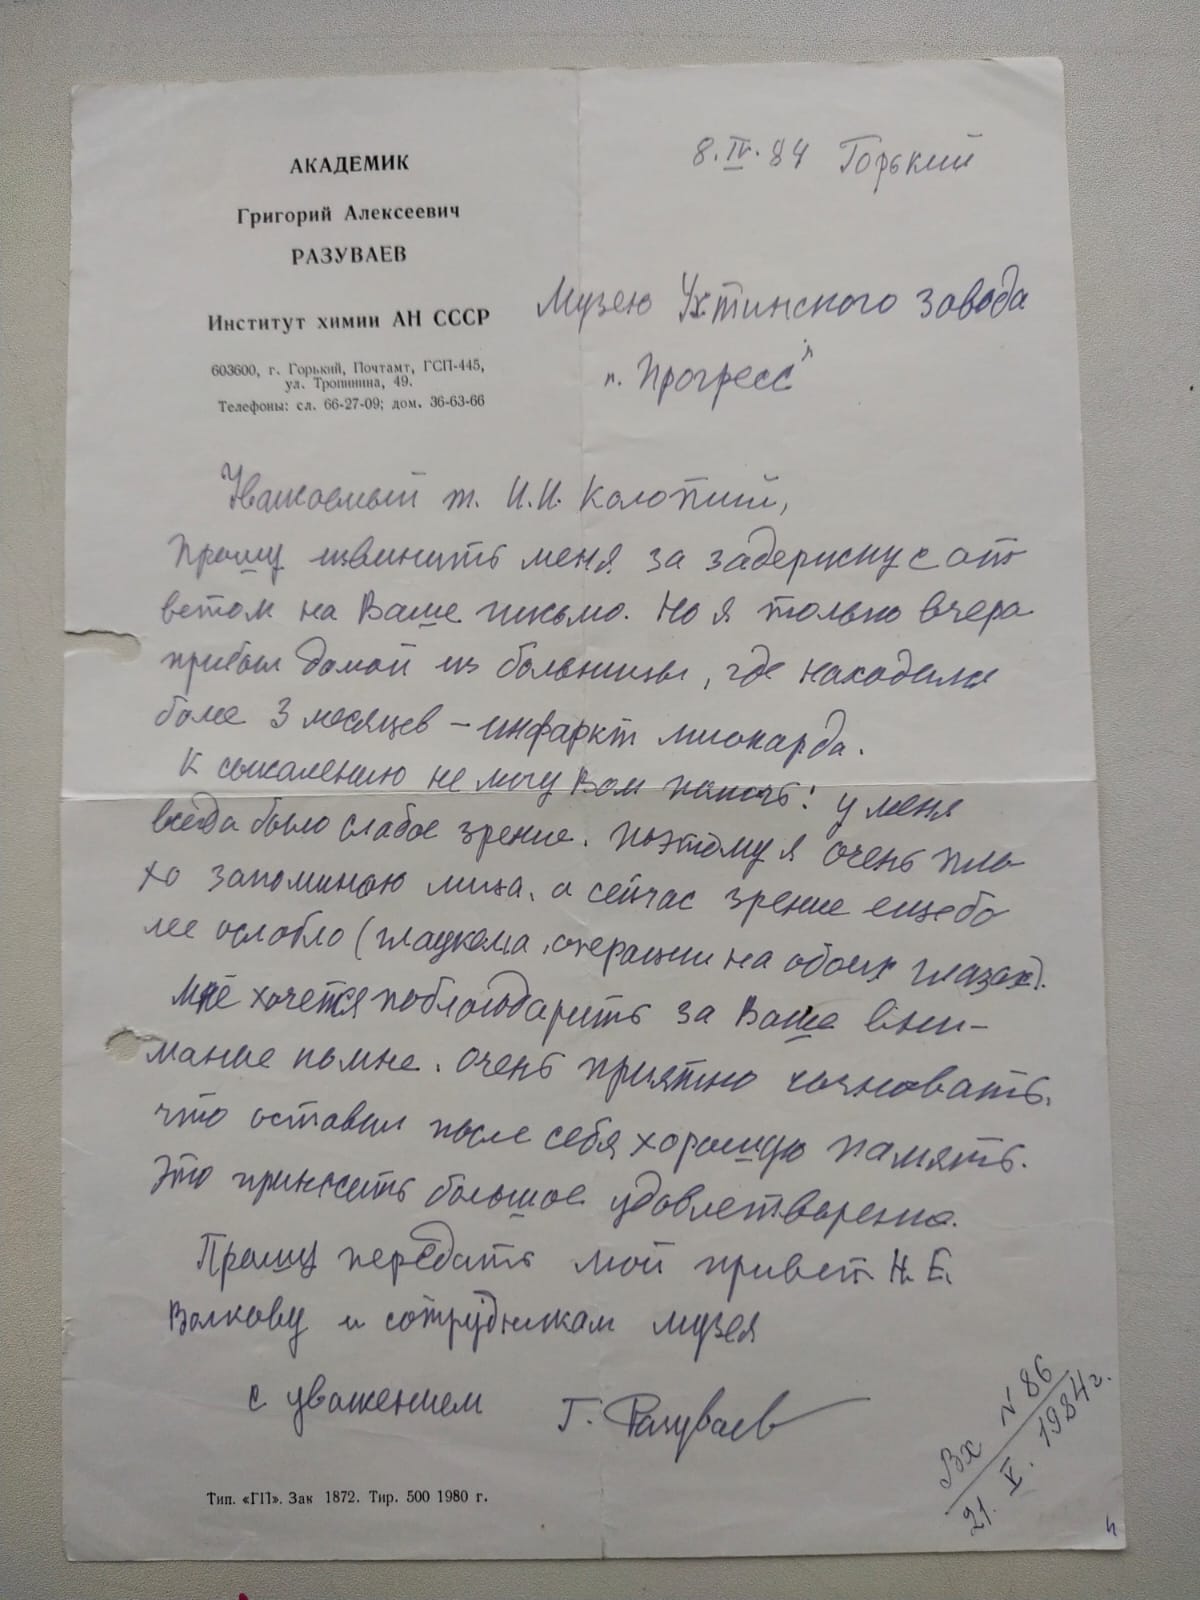 АКАДЕМИК
Григорий Алексеевич
РАЗУВАЕВ
Институт химии АН СССР
603600, г. Горький, Почтамт, ГСП-445,
ул. Тропинина, 49.
Телефоны: сл. 66-27-09; дом. 36-63-66
8.IV.84 Горький
Музею Ухтинского завода
"Прогресс"
Уважаемый т. И.И.
Прошу извинить меня за задержку с от
ветом на Ваше письмо. Но я только вчера
прибыл домой из больницы, где находился
более 3 месяцев – инфаркт миокарда.
К сожалению не могу Вам помочь: у меня
всегда было слабое зрение. Поэтому я очень пло
хо запоминаю лица, а сейчас зрение еще бо
лее ослабло (глаукома, операции на обоих глазах).
Мне хочется поблагодарить за Ваше вни-
мание ко мне. Очень приятно
что оставил после себя хорошую память.
Это приносит большое удовлетворение.
Прошу передать мой привет Н.Е.
Волкову и сотрудникам музея
с уважением Г. Разуваев
Вх N 86
21.V.1984г.
Тип. «ГП». Зак 1872. Тир. 500 1980 г.